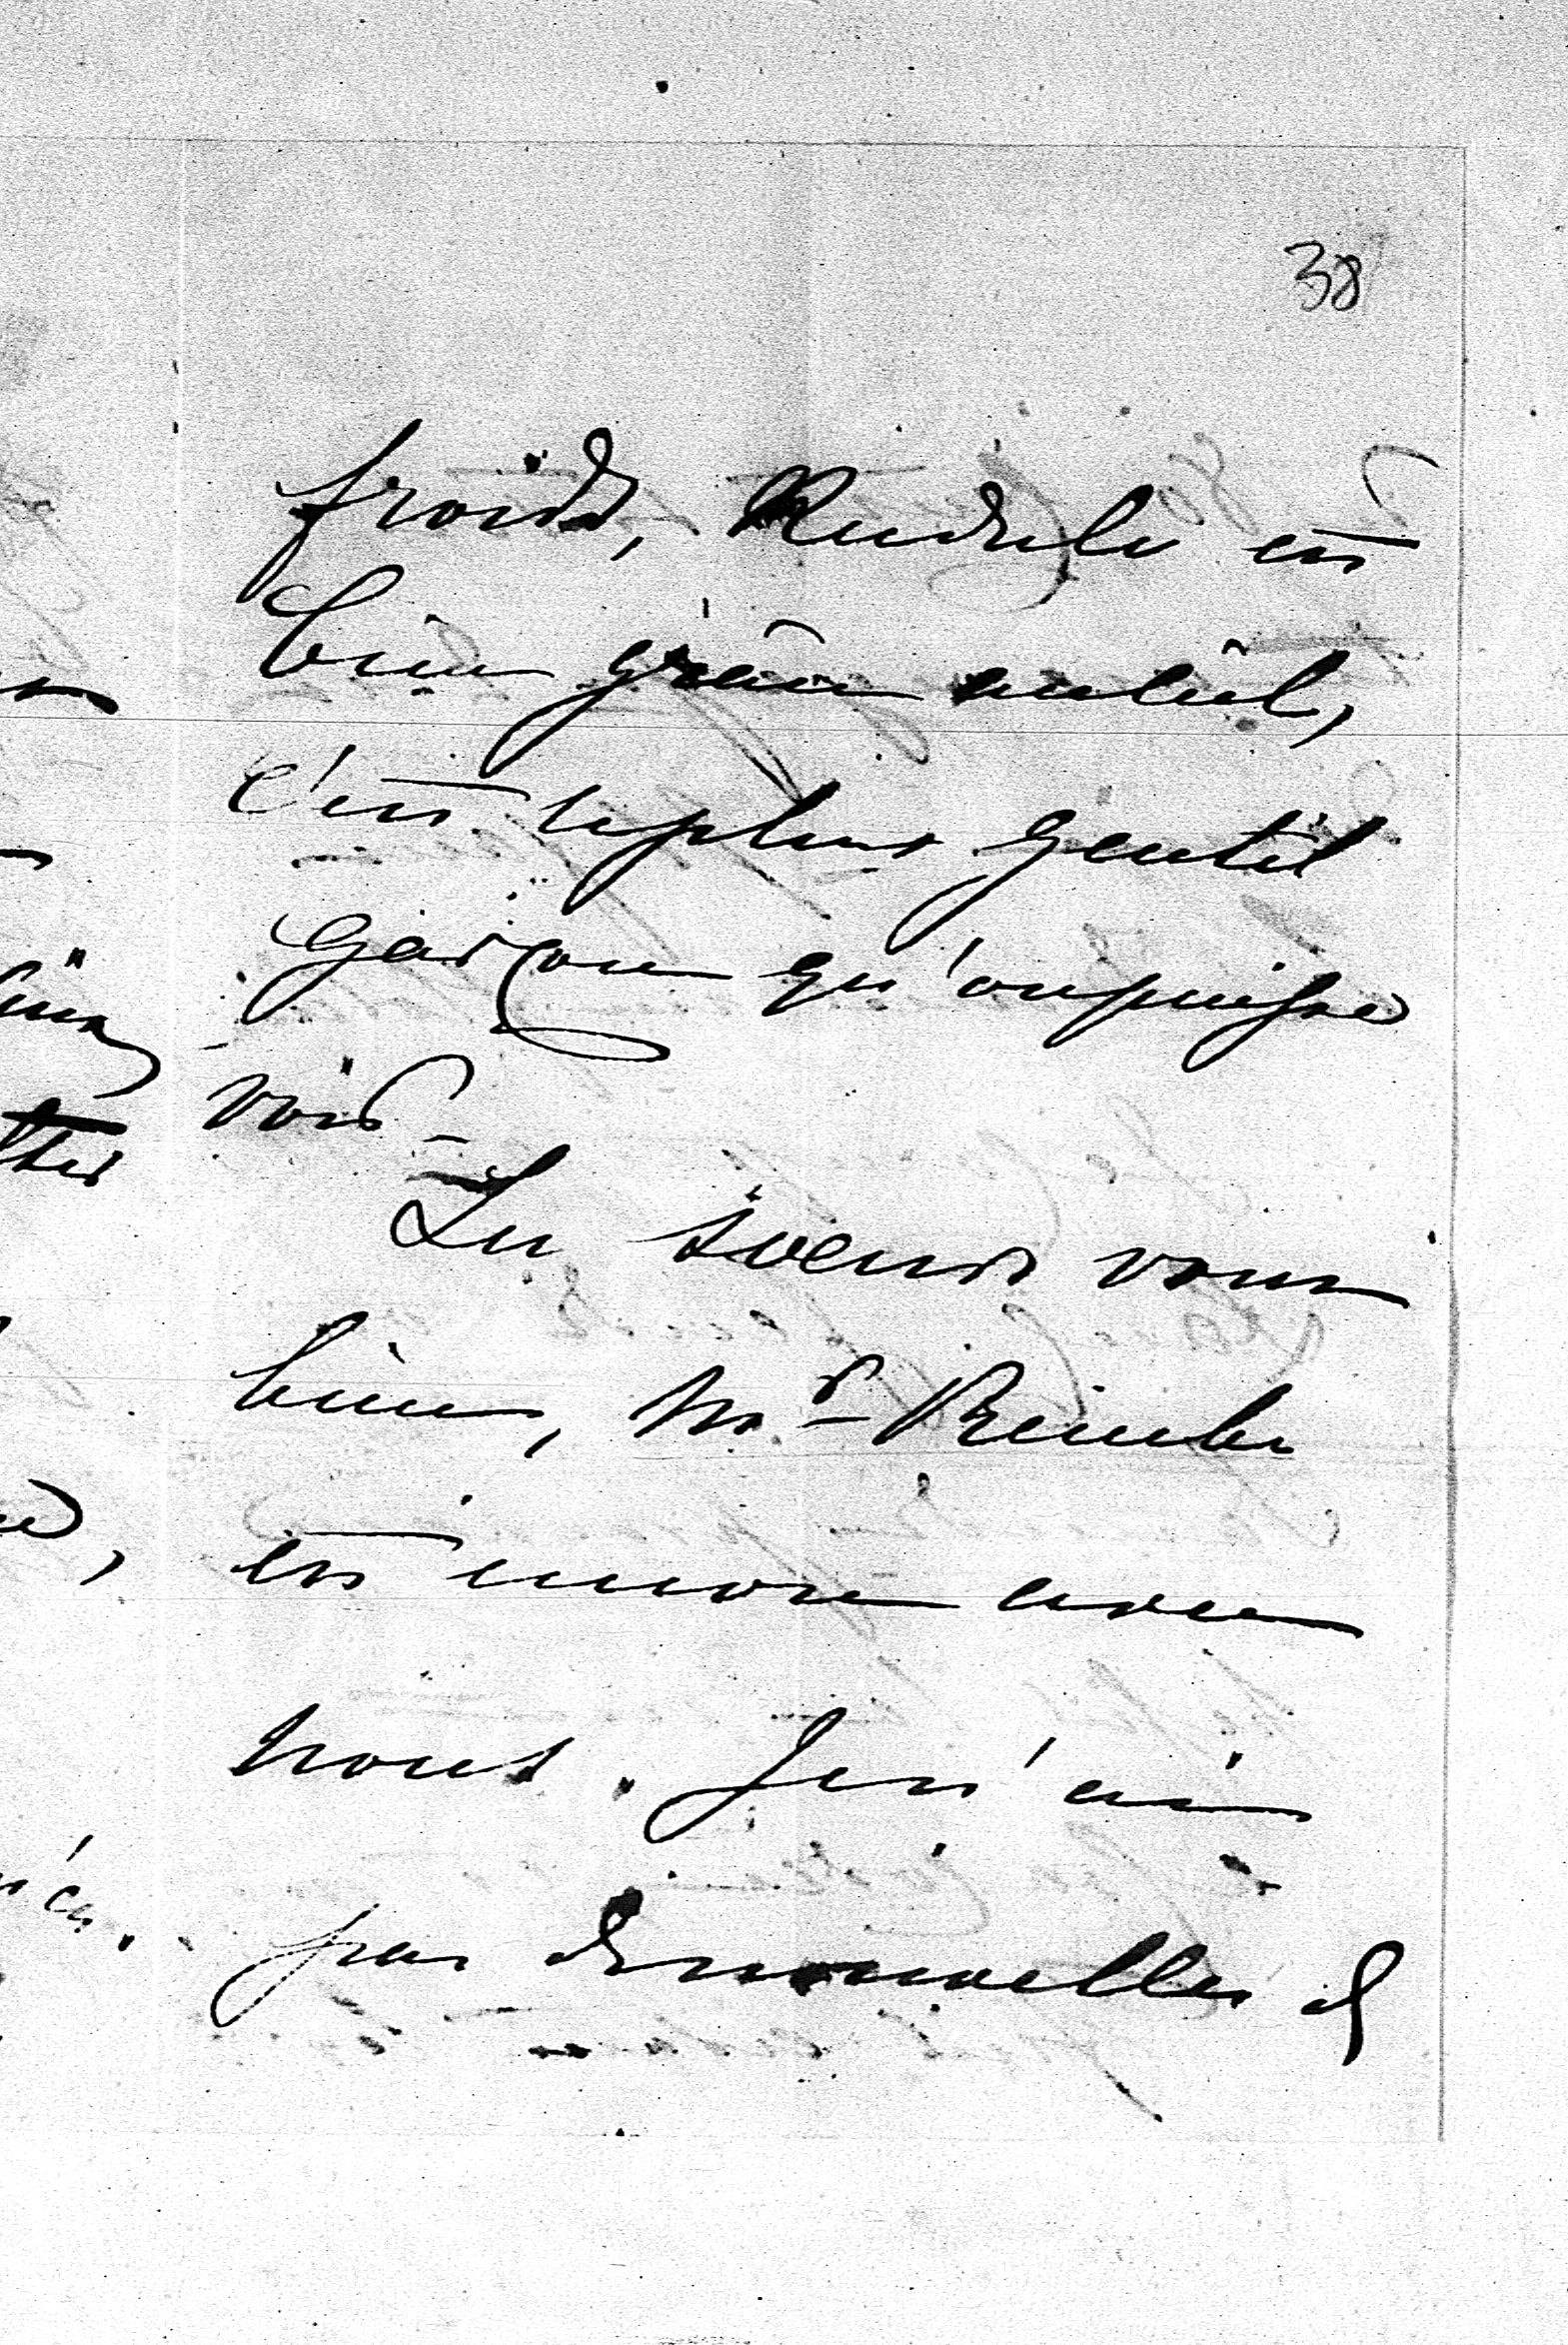 38
froids, Rudolu est
bien grâce au ciel,
c'est le plus gentil
garçon qu'on puisse
voir_
Les soeurs vont
bien, Mr Reimbe
est encore avec
nous. Je n'ai
pas de nouvelles d